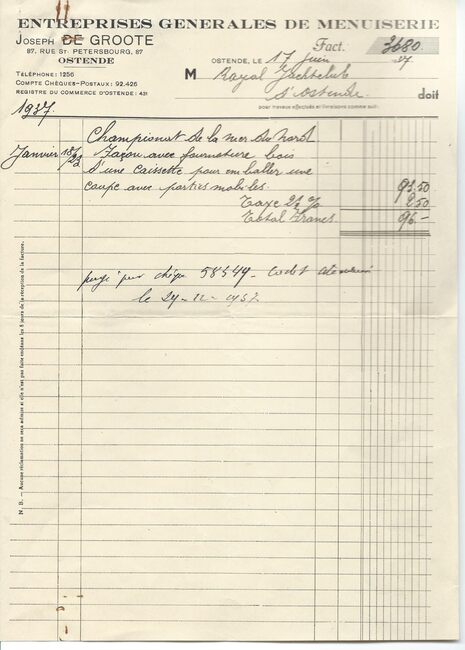 ENTREPRISES GENERALES DE MENUISERIE
JOSEPH DE GROOTE
87, RUE ST. PETERSBOURG, 87
OSTENDE
Fact. 3680
OSTENDE, LE 17 Juin 37
TÉLÉPHONE: 1256
COMPTE CHÈQUES-POSTAUX: 92.426
REGISTRE DU COMMERCE D'OSTENDE: 431
M Royal Yachtclub
d'Ostende. doit
pour travaux effectués et livraisons comme suit:
1937
Championat de la mer du Nord
Janvier 18/23 Façon avec fourniture bois
d'une caissette pour emballer une
coupe avec parties mobiles. 93.50
Taxe 2½% 2.50
Total Francs 96.-
payé par chèque 58549
le 29-12-1937
N. B. — Aucune réclamation ne sera admise si elle n'est pas faite endéans les 8 jours de la réception de la facture.